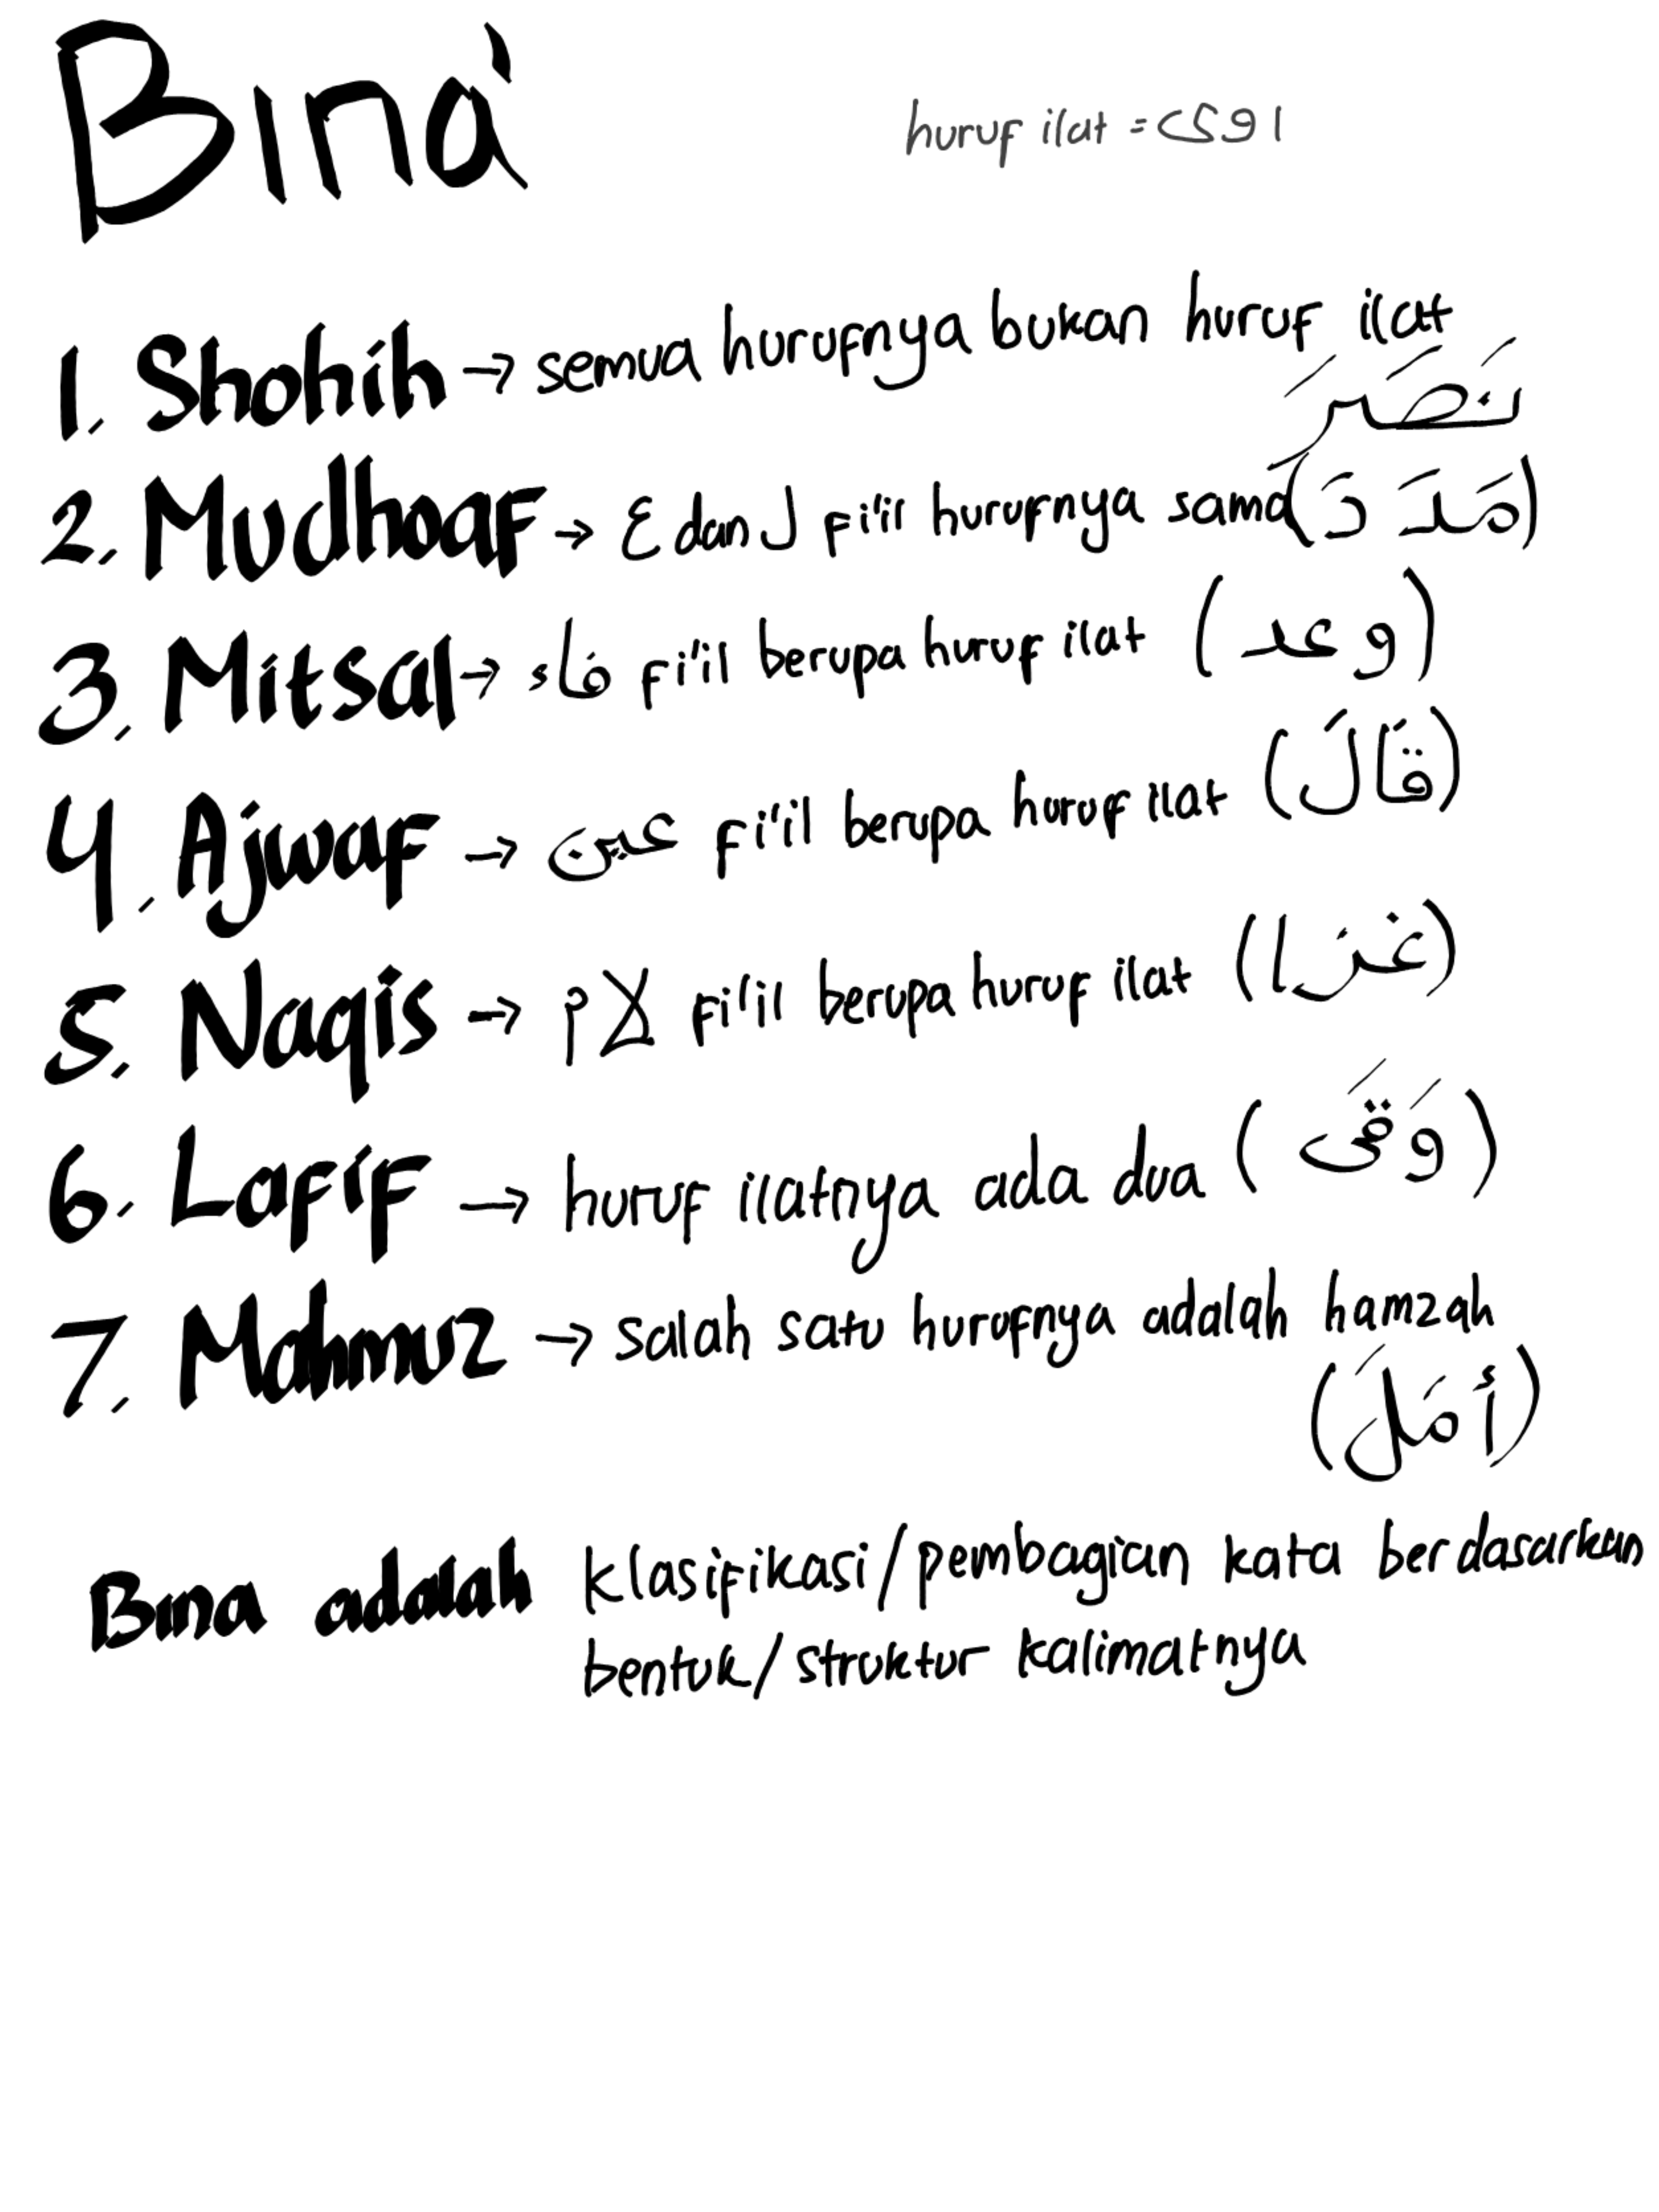 Bina'
huruf ilat = ا و ي
1. Shohih → semua hurufnya bukan huruf ilat
نَصَرَ
2. Mudhoaf → ع dan ل fi'il hurufnya sama (مَدَدَ)
3. Mitsal → فاء fi'il berupa huruf ilat (وعد)
4. Ajwaf → عين fi'il berupa huruf ilat (قَالَ)
5. Naqis → لام fi'il berupa huruf ilat (غزا)
6. Lafif → huruf ilatnya ada dua (وَقَى)
7. Mahmuz → salah satu hurufnya adalah hamzah
(أَمَلَ)
Bina adalah klasifikasi/pembagian kata berdasarkan
bentuk/struktur kalimatnya